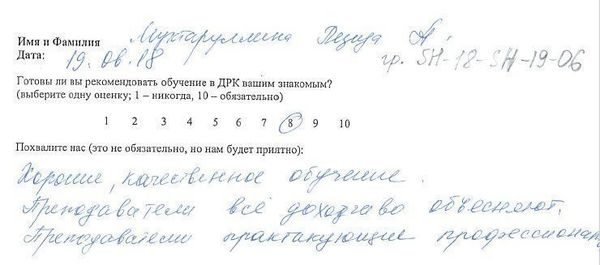 Имя и Фамилия Мухтаруллина Резида А.
Дата: 19.06.18 гр. SH-18-SH-19-06
Готовы ли вы рекомендовать обучение в ДРК вашим знакомым?
(выберите одну оценку; 1 – никогда, 10 – обязательно)
1 2 3 4 5 6 7 8 9 10
Похвалите нас (это не обязательно, но нам будет приятно):
Хорошие, качественное обучение.
Преподаватели всё доходчиво объесняют.
Преподаватели практикующие профессионал